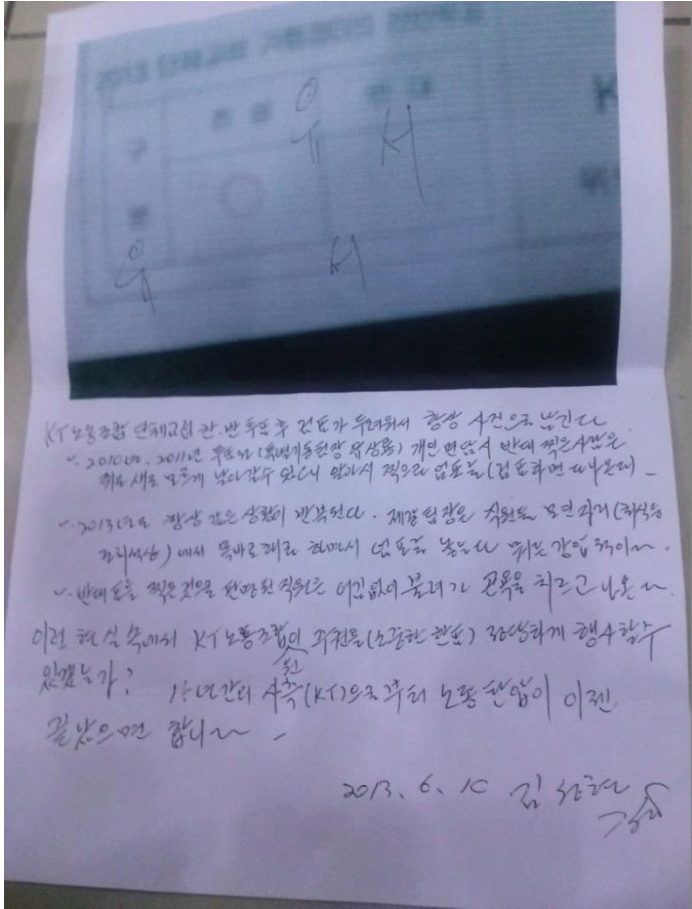 유
서
유
서
KT노동조합 단체교섭 찬.반투표 후 검표가 두려워서 항상 사진으로 남긴다
2010년, 2011년 투표시 개인 면담시 반대 찍은 사람은
쥐도 새도 모르게 날아갈수 있으니 알아서 찍으라 엄포를 (검표하면 다 나온다)
2013년도 항상 같은 상황이 반복된다. 팀장은 직원들 모인 자리 (회식등
조회석상)에서 똑바로 해라 하면서 엄포를 놓는다 뒤는 강압적이다.
반대표를 찍은 것으로 판명된 직원은 어김없이 불려가 곤욕을 치르고 나온다.
이런 현실 속에서 KT노동조합원의 주권을 (소중한 한표) 정당하게 행사할수
있겠는가? 15년간의 사측(KT)으로부터 노동탄압이 이젠
끝났으면 합니다
2013. 6. 10 김